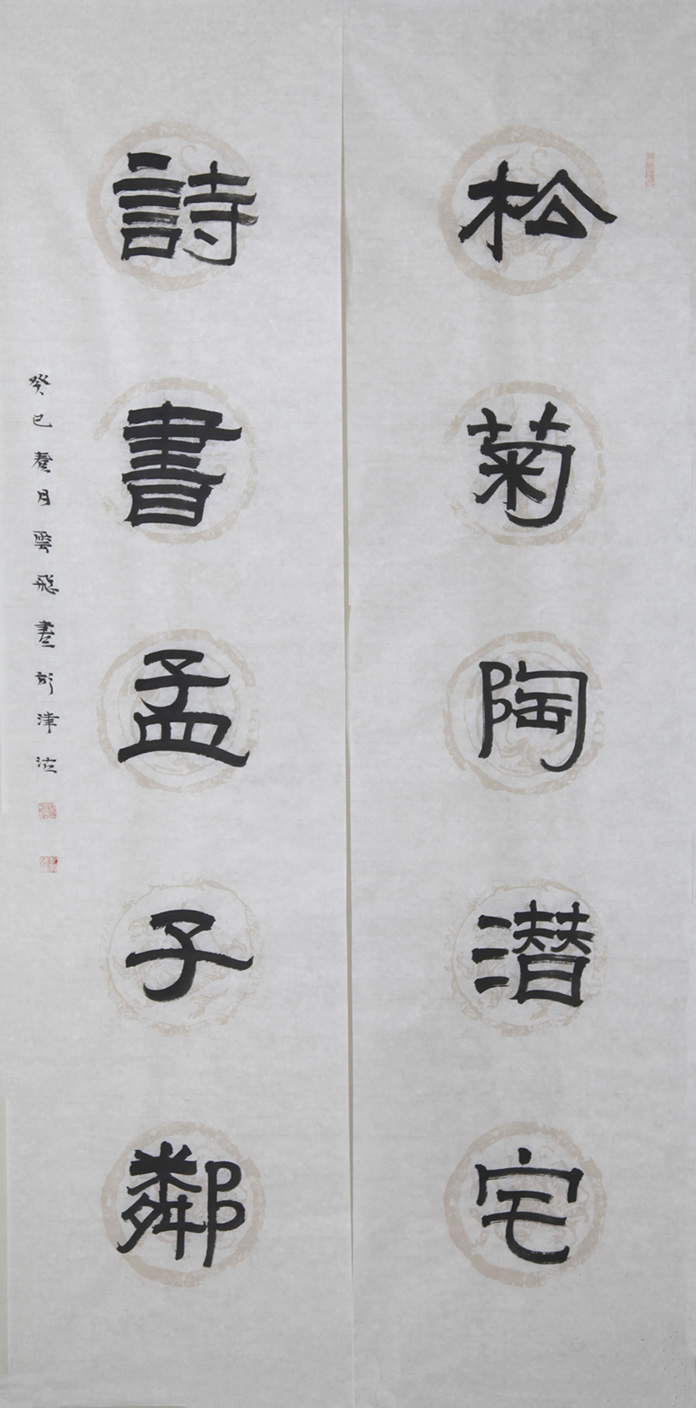 松菊陶潜宅
詩書孟子鄰
癸巳 月雲飛書於津沽